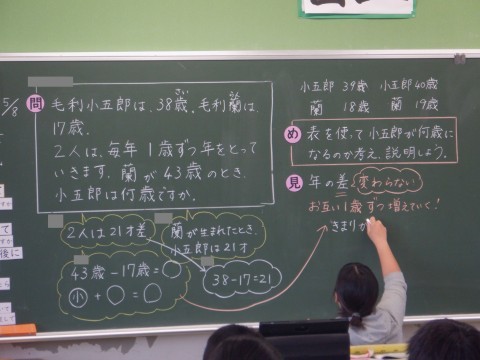 5/8
問 毛利小五郎は、38歳。毛利蘭は、
さい
17歳。
2人は、毎年1歳ずつ年をとって
いきます。蘭が43歳のとき、
小五郎は何歳ですか。
2人は21才差
蘭が生まれたとき、
小五郎は21才
43歳-17歳=○
小+○=○
38-17=21
小五郎 39歳 小五郎 40歳
蘭 18歳 蘭 19歳
め 表を使って小五郎が何歳に
なるのか考え、説明しよう。
見 年の差 変わらない
お互い1歳ずつ増えていく!
きまりが